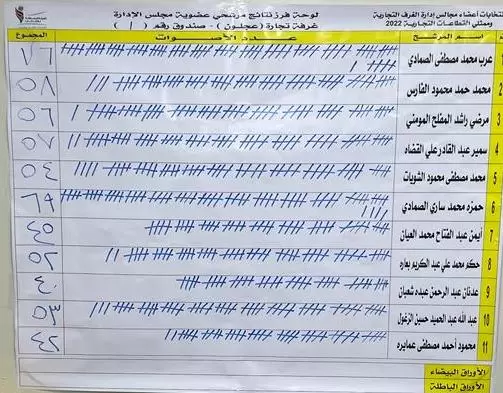 انتخابات أعضاء مجالس إدارة الغرف التجارية
وممثلي القطاعات التجارية 2022
لوحة فرز نتائج مرشحي عضوية مجلس الإدارة
غرفة تجارة (عجلون) - صندوق رقم ( ١ )
اسم المرشح عدد الأصوات المجموع
1 عرب محمد مصطفى الصمادي ٧٦
2 محمد حمد محمود الفارس ٥٨
3 مرضي راشد المفلح المومني ٥٦
4 سمير عبد القادر علي القضاه ٥٧
5 محمد مصطفى محمود الشويات ٥٤
6 حمزه محمد ساري الصمادي ٦٩
7 أيمن عبد الفتاح محمد العيان ٤٥
8 حكم محمد علي عبد الكريم بعاره ٥٢
9 عدنان عبد الرحمن عبده شعبان ٤٠
10 عبد الله عبد الحميد حسين الزغول ٥٣
11 محمود أحمد مصطفى عمايره ٤٢
الأوراق البيضاء
الأوراق الباطلة